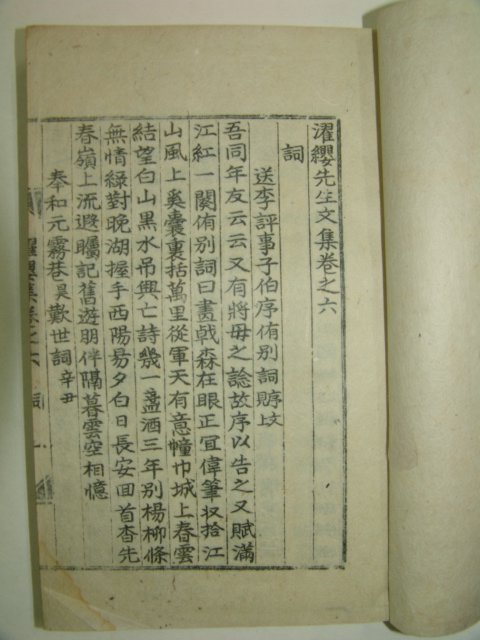 濯纓先生文集卷之六
詞
送李評事子伯序侑別詞賟文
吾同年友云云又有將毋之諗故序以告之又賦滿
江紅一闋侑別詞曰畫戟森在眼正宜偉筆収拾江
山風上奚囊裏括萬里從軍天有意幢巾城上春雲
結望白山黑水吊興亡詩幾一盞酒三年別楊柳條
無情綠對晚湖握手西陽昜夕白日長安回首杳先
春嶺上流遐矚記舊遊朋伴隔暮雲空相憶
奉和元霧巷昊歎世詞辛丑
濯纓集卷之六 詞 一